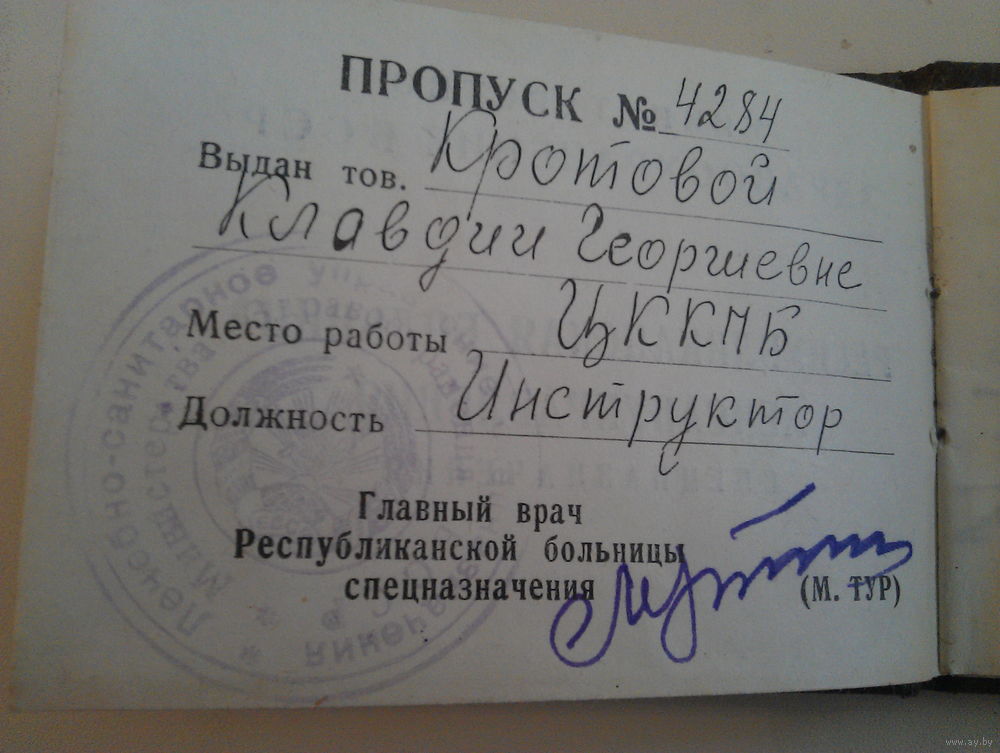 ПРОПУСК № 4284
Выдан тов. Кротовой
Клавдии Георгиевне
Место работы ЦККПБ
Должность Инструктор
Главный врач
Республиканской больницы
спецназначения (М. ТУР)
Лечебно-санитарное управление
Министерства здравоохранения
www.ay.by